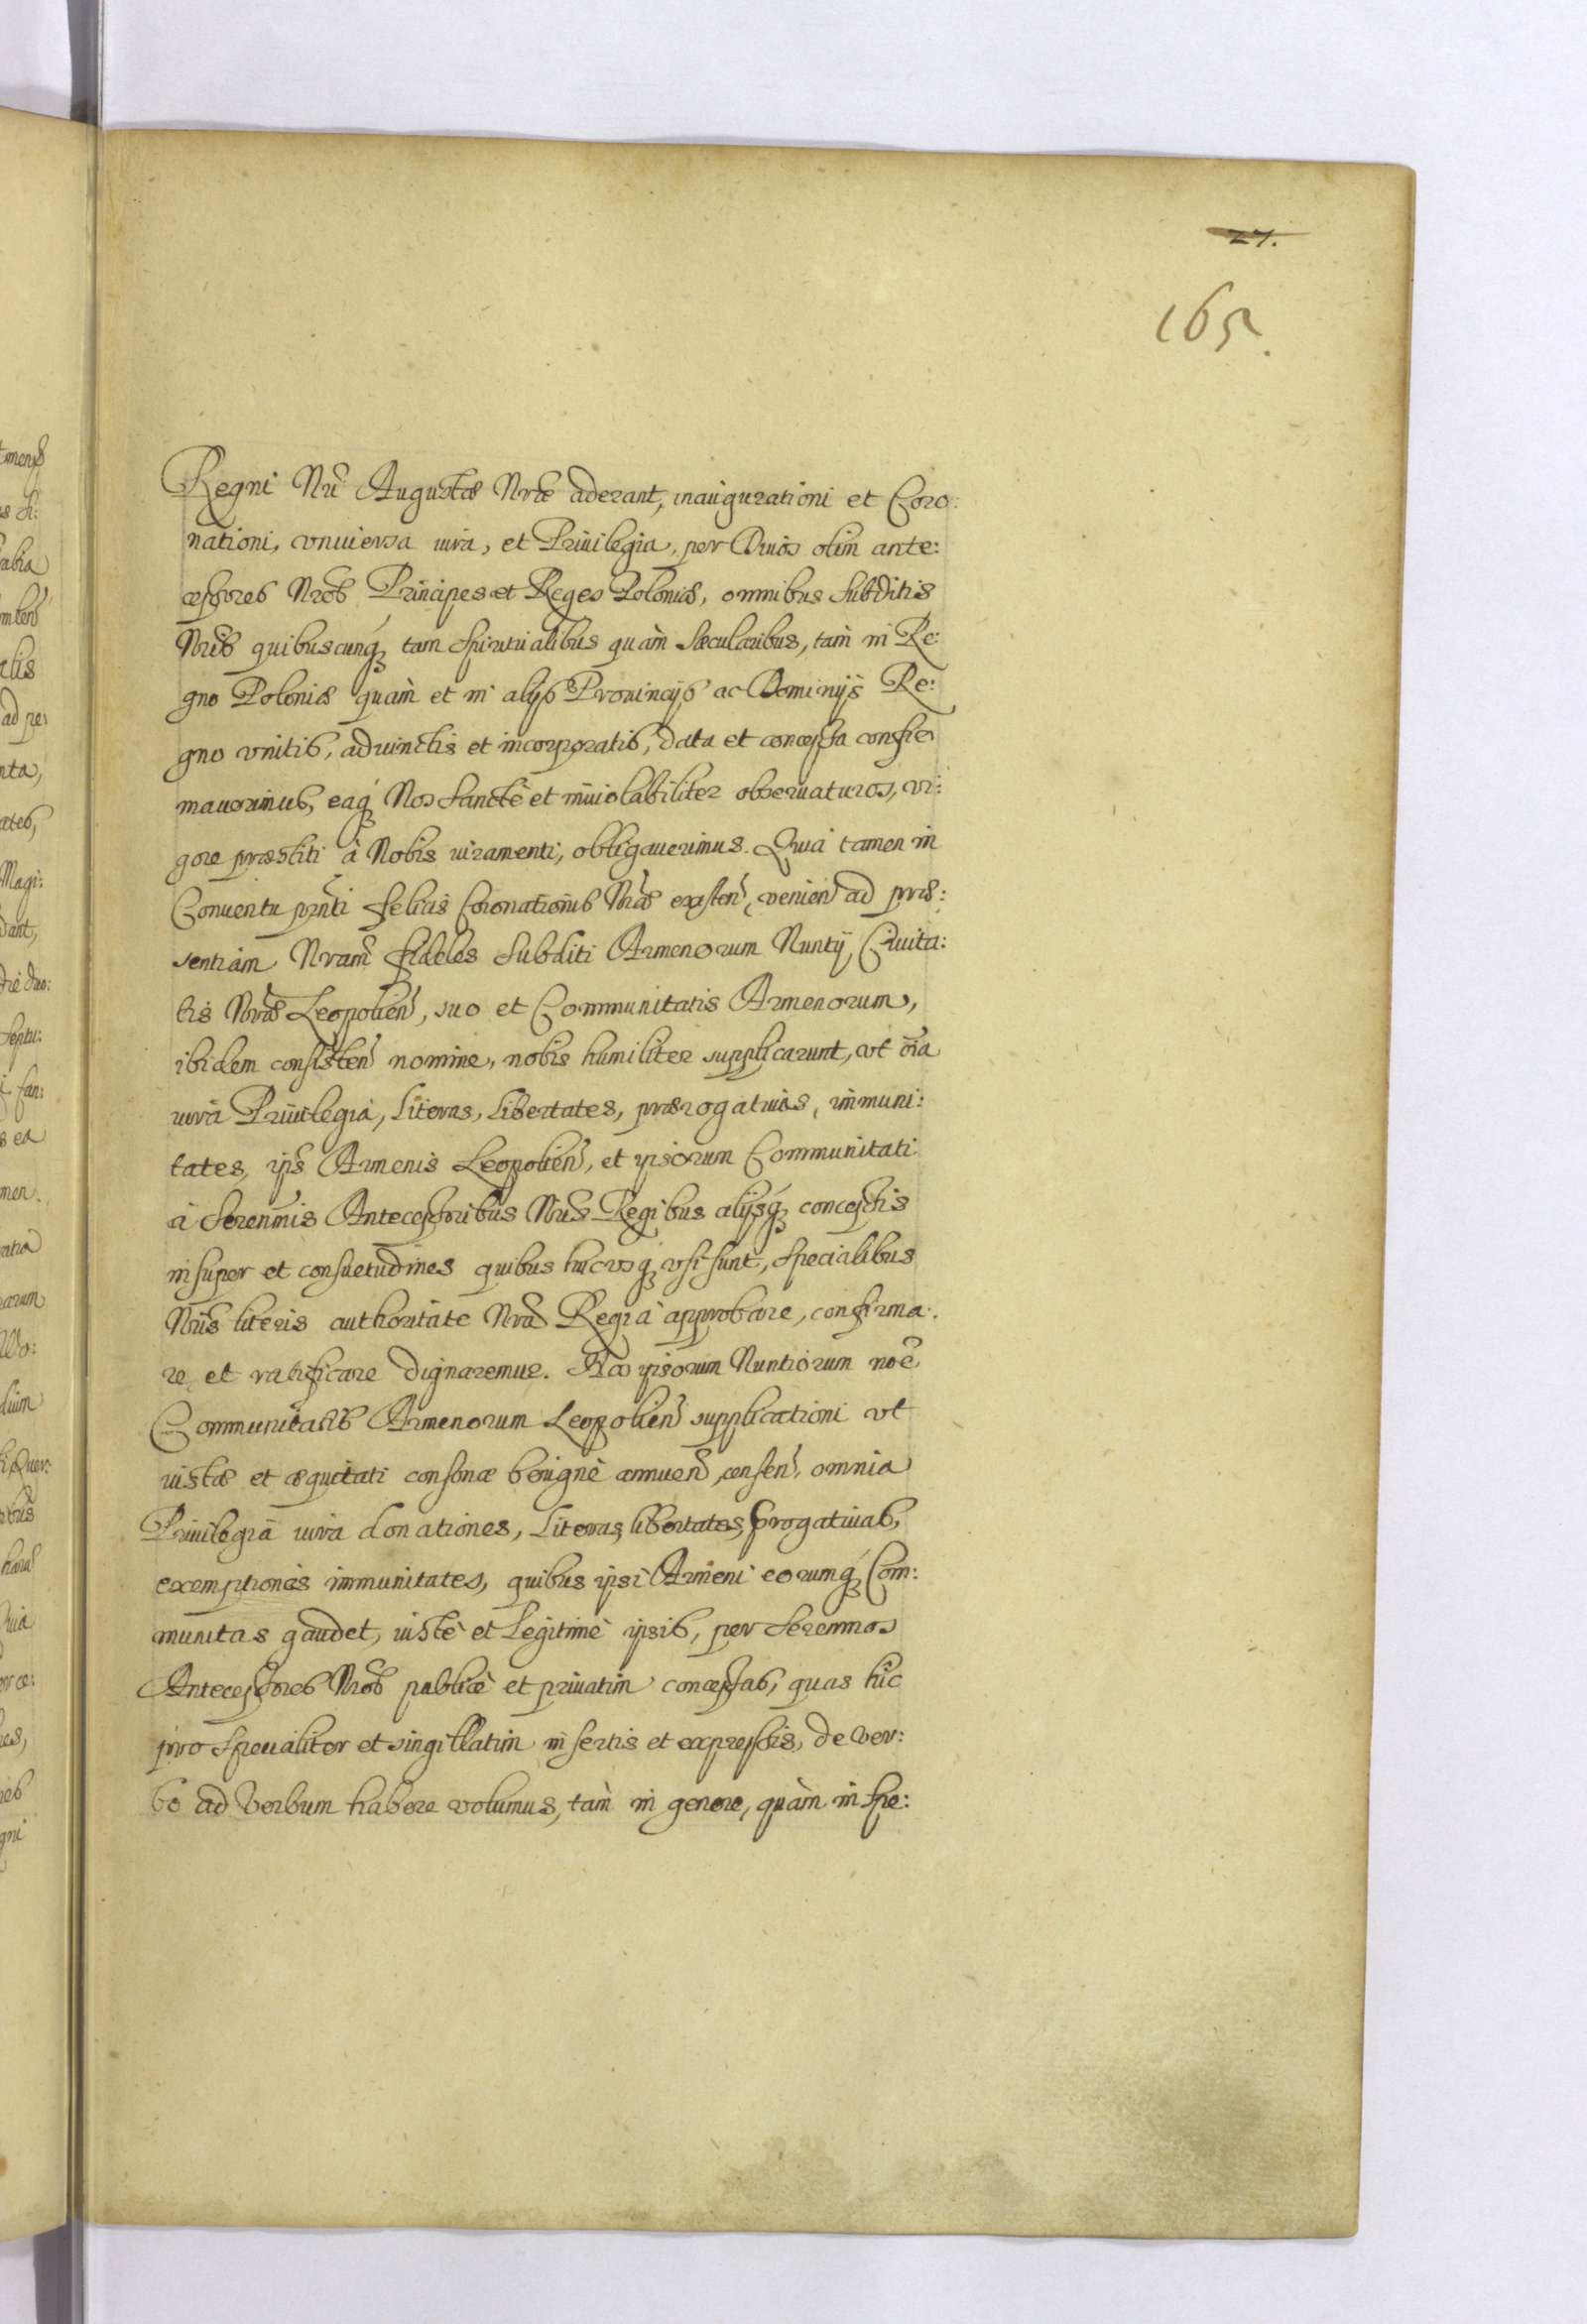 27.
165.
Regni Nri Augustæ Nræ aderant, inaugurationi et Coro:
nationi, vniuersa iura, et Priuilegia, per Diuos olim ante:
cessores Nros Principes et Reges Poloniæ, omnibus subditis
Nris quibuscunq₃ tam spiritualibus quàm sæcularibus, tàm in Re:
gno Poloniæ quàm et in alijs Prouincijs ac Dominijs Re:
gno vnitis, aduinctis et incorporatis, data et concessa confir
mauerimus, eaq₃ Nos sanctè et inuiolabiliter obseruaturos, vi:
gore præstiti à Nobis iuramenti, obligauerimus. Quia tamen in
Conuentu prnti felicis Coronationis Nræ existen, venien ad præ:
sentiam Nram fideles subditi Armenorum Nuntij Ciuita:
tis Nræ Leopolien, suo et Communitatis Armenorum,
ibidem consisten nomine, nobis humiliter supplicarunt, vt oīa
iura Priuilegia, Literas, Libertates, prærogatiuas, immuni:
tates, ipis Armenis Leopolien, et ipsorum Communitati
à Serenmis Antecessoribus Nris Regibus alijsq₃ concessis
insuper et consuetudines quibus hucvsq₃ vsi sunt, specialibus
Nris literis authoritate Nra Regià approbare, confirma:
re et ratificare dignaremur. Nos ipsorum Nuntiorum noē
Communitatis Armenorum Leopolien supplicationi vt
iustæ et æquitati consonæ benignè annuen, censen, omnia
Priuilegia iura donationes, Literas, libertates, progatiuas,
exemptiones immunitates, quibus ipsi Armeni eorumq₃ Com:
munitas gaudet, iustè et Legitimè ipsis, per Serenmos
Antecessores Nros publicè et priuatim concessas, quas hic
pro specialiter et singillatim insertis et expressis, de ver:
bo ad verbum habere volumus, tàm in genere, quàm in spe: